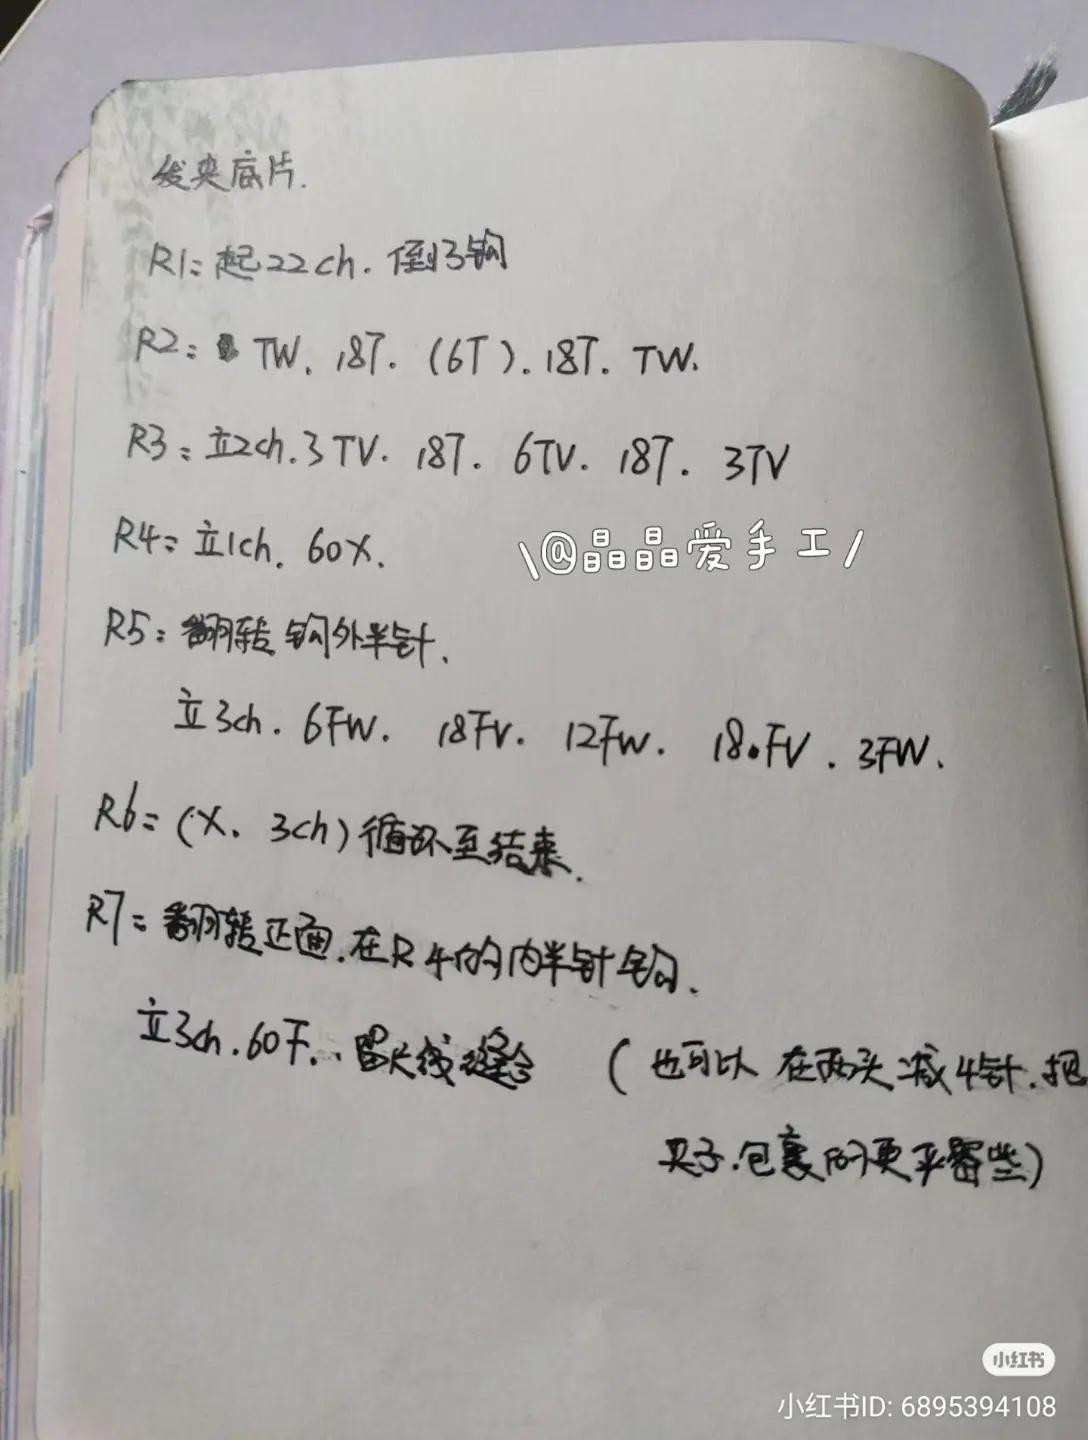 发夹底片.
R1: 起22ch. 倒3钩
R2: TW. 18T. (6T). 18T. TW.
R3: 立2ch. 3TV. 18T. 6TV. 18T. 3TV
R4: 立1ch. 60X.
\@晶晶爱手工/
R5: 翻转钩外半针.
立3ch. 6FW. 18FV. 12FW. 18.FV. 3FW.
R6: (X. 3ch)循环至结束.
R7: 翻转正面.在R4的内半针钩.
立3ch.60F.. 留长线缝合 (也可以在两头减4针.把
夹子.包裹的更平整些)
小红书
小红书ID: 6895394108